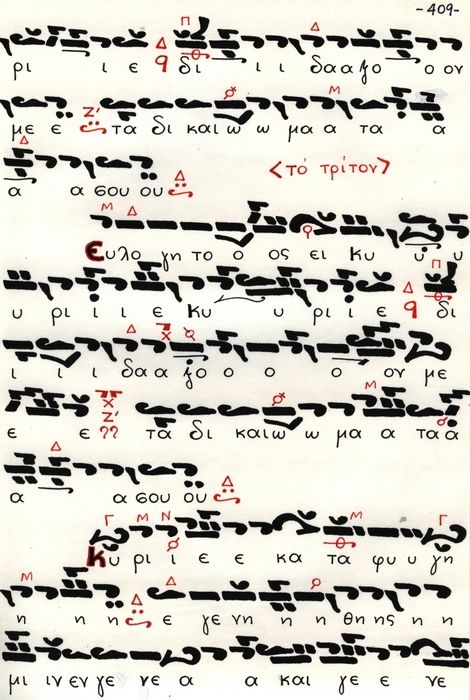 -409-
ρι ι ε δι ι ι δααξο ο ον
με ε τα δι καιω ω μα α τα α
α α σου ου
<το τρίτον>
Ευλο γη το ο ος ει κυ υ υ
υ ρι ι ι ε κυ υ ρι ε δι
ι ι ι δαα ξο ο ο ο ον με
ε ε τα δι καιω ω μα α ταα
α α σου ου
Κυ ρι ι ε ε κα τα φυ υ γη
η η η ε γε νη η η θη ης η η
μι ιν εν γε νε α α και γε ε νε